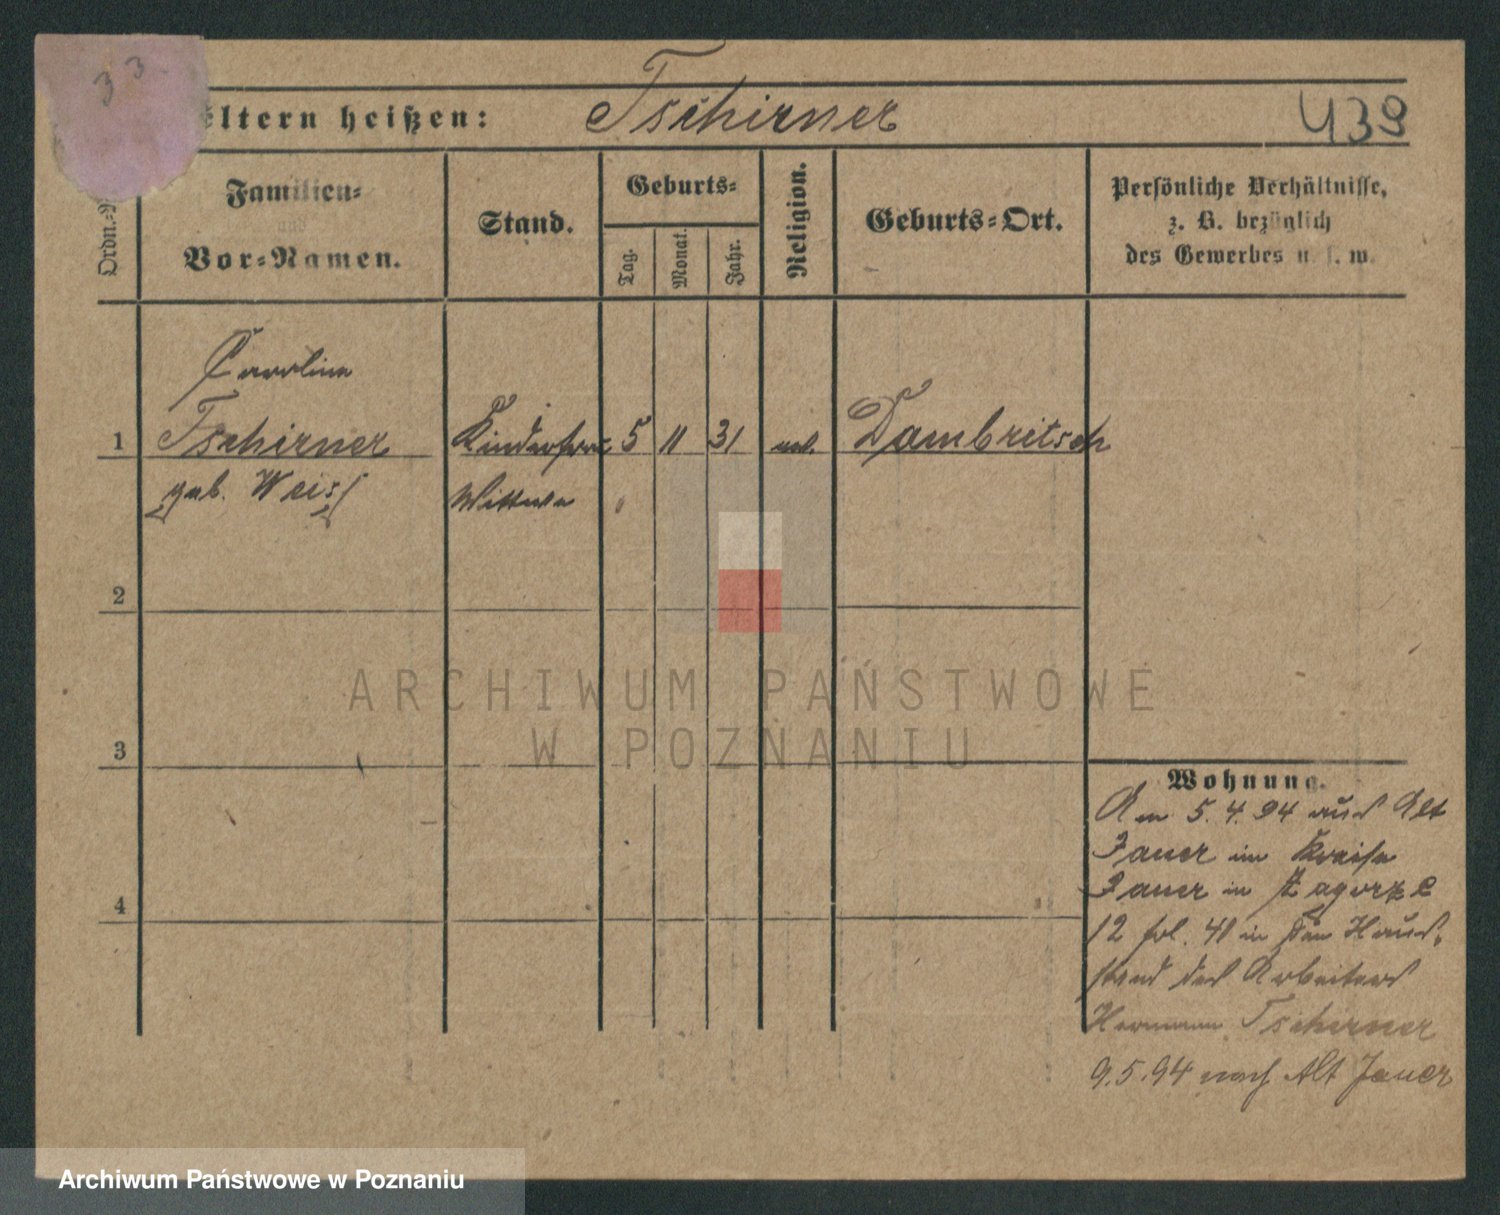 33.
eltern heißen: Tschirner 439
Ordn.-N
Familien-
und
Vor-Namen.
Stand.
Geburts-
Tag.
Monat.
Jahr.
Religion.
Geburts-Ort.
Persönliche Verhältnisse,
z. B. bezüglich
des Gewerbes u. s. w.
Caroline
1 Tschirner Kinderfrau 5 11 31 ev. Dambritsch
geb. Weiss Wittwe
2
3
4
Wohnung.
Am 5.4.94 aus Alt
Jauer im Kreise
Jauer in Zagorze
12 fol. 41 in den Haus-
stand des Arbeiters
Hermann Tschirner
9.5.94 nach Alt Jauer
ARCHIWUM PAŃSTWOWE
W POZNANIU
Archiwum Państwowe w Poznaniu